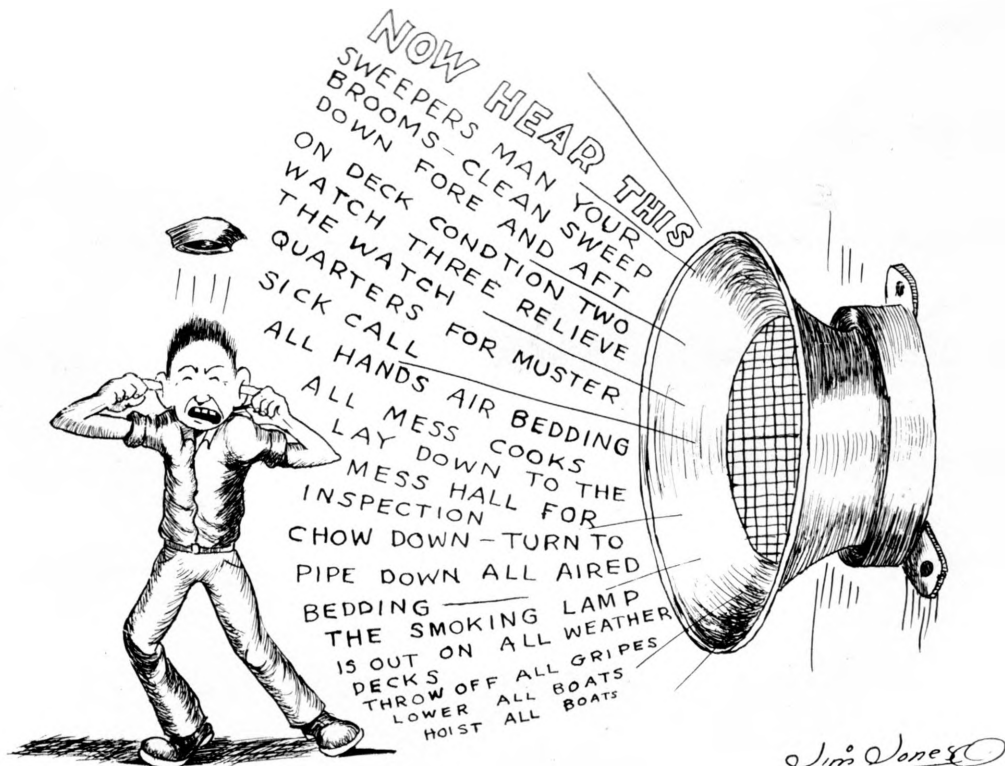 NOW HEAR THIS
SWEEPERS MAN YOUR
BROOMS - CLEAN SWEEP
DOWN FORE AND AFT
ON DECK CONDTION TWO
WATCH THREE RELIEVE
THE WATCH
QUARTERS FOR MUSTER
SICK CALL
ALL HANDS AIR BEDDING
ALL MESS COOKS
LAY DOWN TO THE
MESS HALL FOR
INSPECTION
CHOW DOWN - TURN TO
PIPE DOWN ALL AIRED
BEDDING
THE SMOKING LAMP
IS OUT ON ALL WEATHER
DECKS
THROW OFF ALL GRIPES
LOWER ALL BOATS
HOIST ALL BOATS
Jim Jones